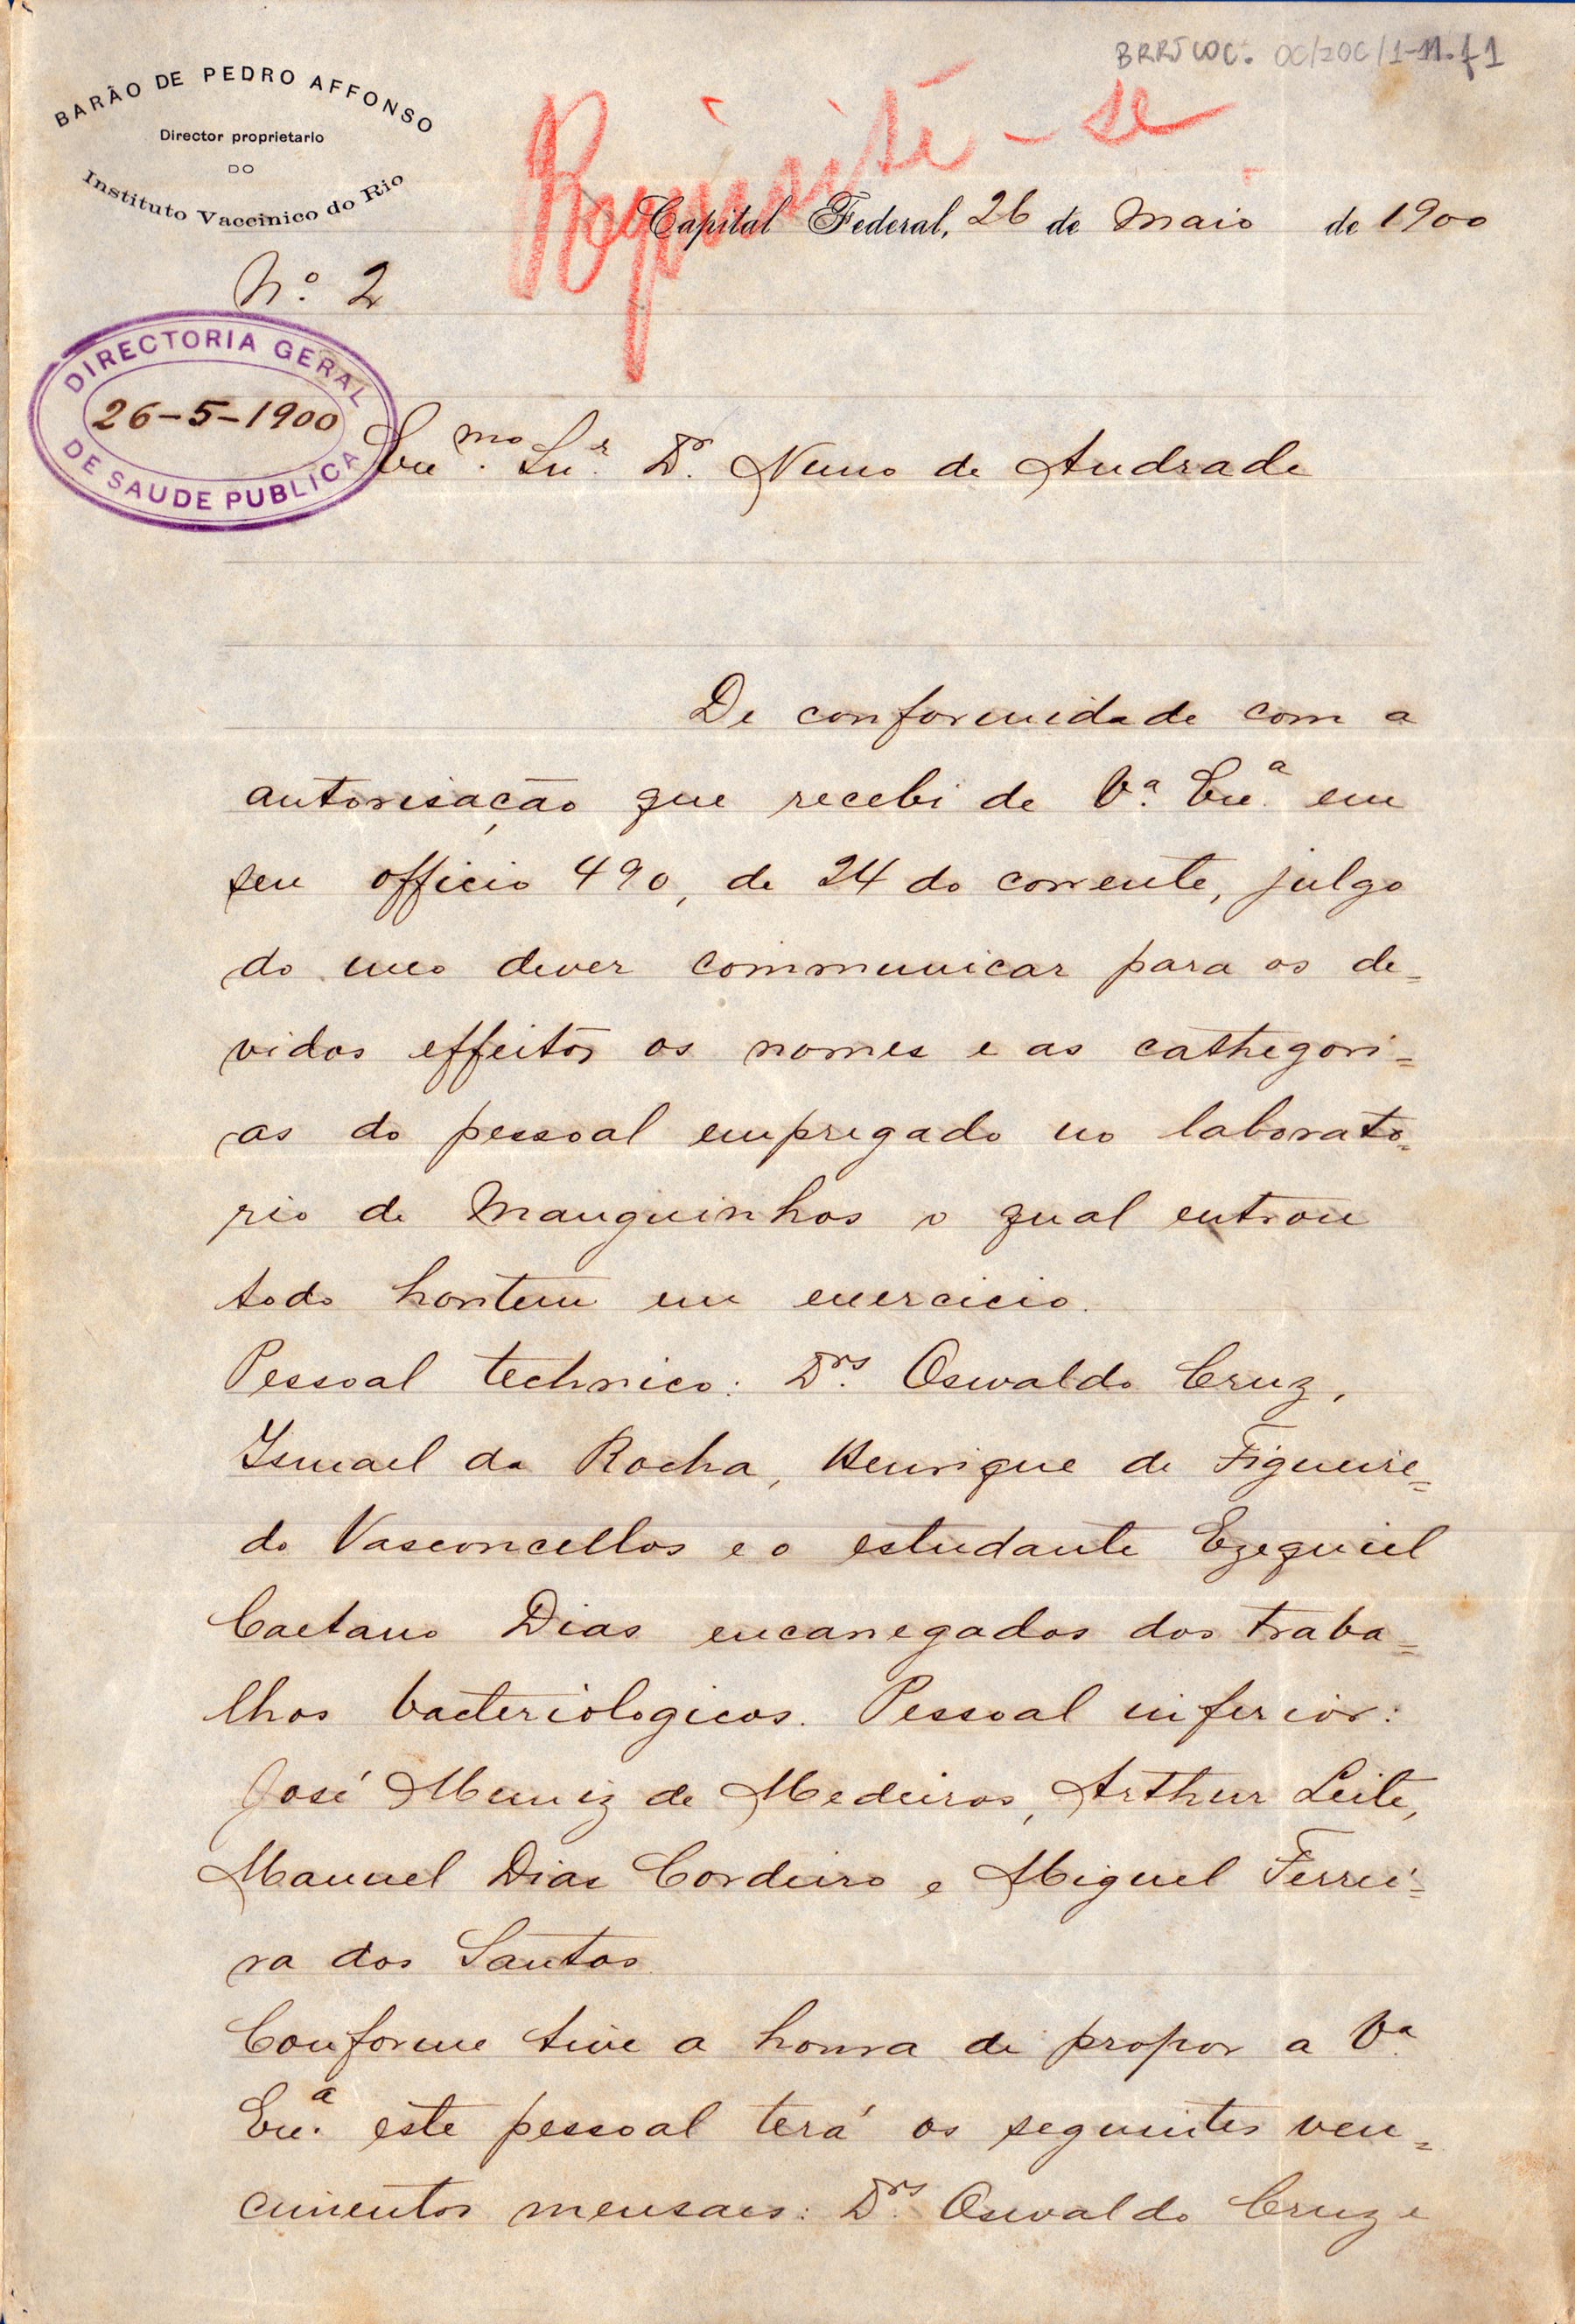 BRRJCOC. OC/COC/1-11.f1
BARÃO DE PEDRO AFFONSO
Director proprietario
DO
Instituto Vaccinico do Rio
Requisite-se
Capital Federal, 26 de Maio de 1900
Nº. 2
DIRECTORIA GERAL
26-5-1900
DE SAUDE PUBLICA
Exmo. Snr. Dr. Nuno de Andrade
De conformidade com a
autorisação que recebi de Vª. Exª. em
seu officio 490, de 24 do corrente, julgo
do meo dever communicar para os de=
vidos effeitos os nomes e as cathegori=
as do pessoal empregado no laborato=
rio de Manguinhos o qual entrou
todo hontem em exercicio.
Pessoal technico: Drs. Oswaldo Cruz,
Ismael da Rocha, Henrique de Figueire=
do Vasconcellos e o estudante Ezequiel
Caetano Dias encarregados dos traba=
lhos bacteriologicos. Pessoal inferior:
José Muniz de Medeiros, Arthur Leite,
Manuel Dias Cordeiro e Miguel Ferrei=
ra dos Santos.
Conforme tive a honra de propor a Vª.
Exª. este pessoal terá os seguintes ven=
cimentos mensaes: Drs. Oswaldo Cruz e